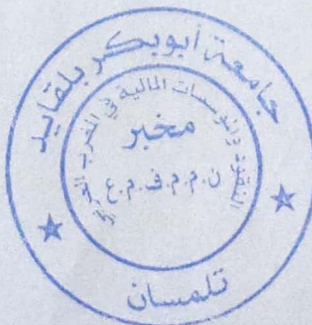 جامعة أبو بكر بلقايد
النقود والمؤسسات المالية في المغرب العربي
مخبر
ن.م.م.ف.م.ع
تلمسان